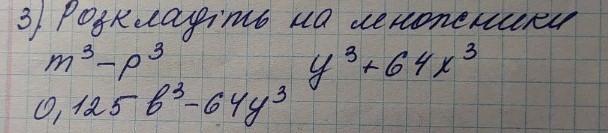 3) Розкладіть на множники
m³-p³ y³+64x³
0,125b³-64y³